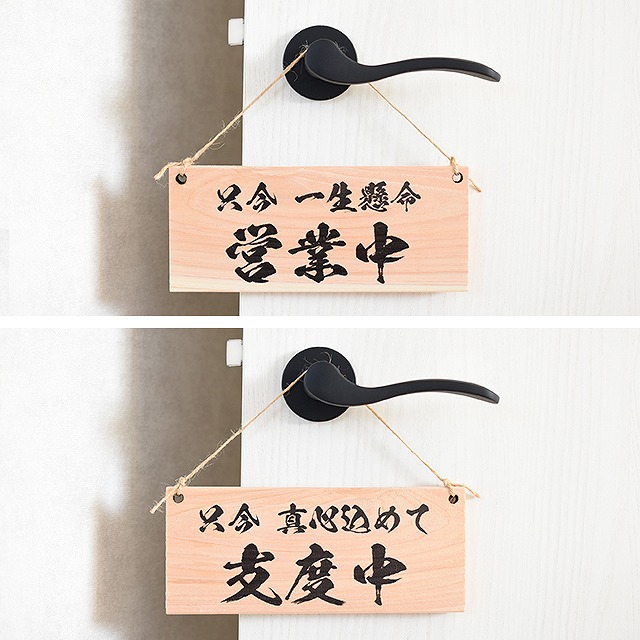 只今 一生懸命
営業中
只今 真心込めて
支度中